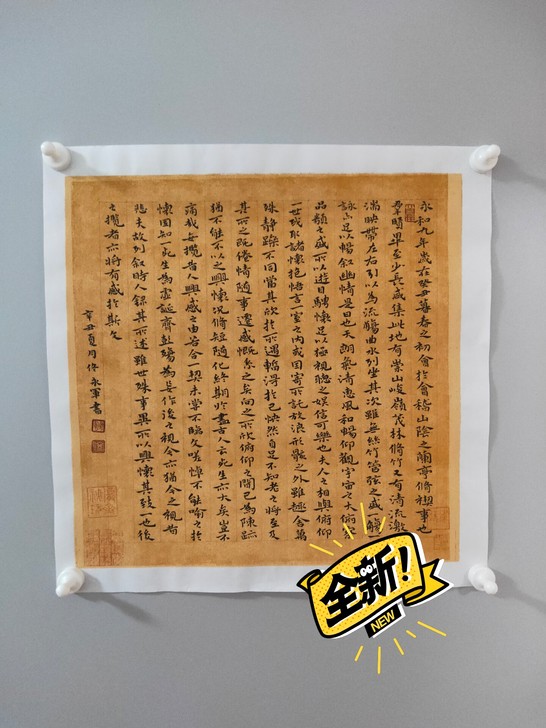 永和九年歲在癸丑暮春之初會於會稽山陰之蘭亭脩禊事也
羣賢畢至少長咸集此地有崇山峻嶺茂林脩竹又有清流激
湍映帶左右引以為流觴曲水列坐其次雖無絲竹管弦之盛一觴一
詠亦足以暢叙幽情是日也天朗氣清惠風和暢仰觀宇宙之大俯察
品類之盛所以遊目騁懷足以極視聽之娛信可樂也夫人之相與俯仰
一世或取諸懷抱悟言一室之內或因寄所託放浪形骸之外雖趣舍萬
殊靜躁不同當其欣於所遇暫得於己快然自足不知老之將至及
其所之既惓情隨事遷感慨係之矣向之所欣俯仰之間已為陳跡
猶不能不以之興懷況脩短隨化終期於盡古人云死生亦大矣豈不
痛哉每攬昔人興感之由若合一契未嘗不臨文嗟悼不能喻之於
懷固知一死生為虛誕齊彭殤為妄作後之視今亦猶今之視昔
悲夫故列叙時人錄其所述雖世殊事異所以興懷其致一也後
之攬者亦將有感於斯文
辛丑夏月佟永軍書
全新!
NEW